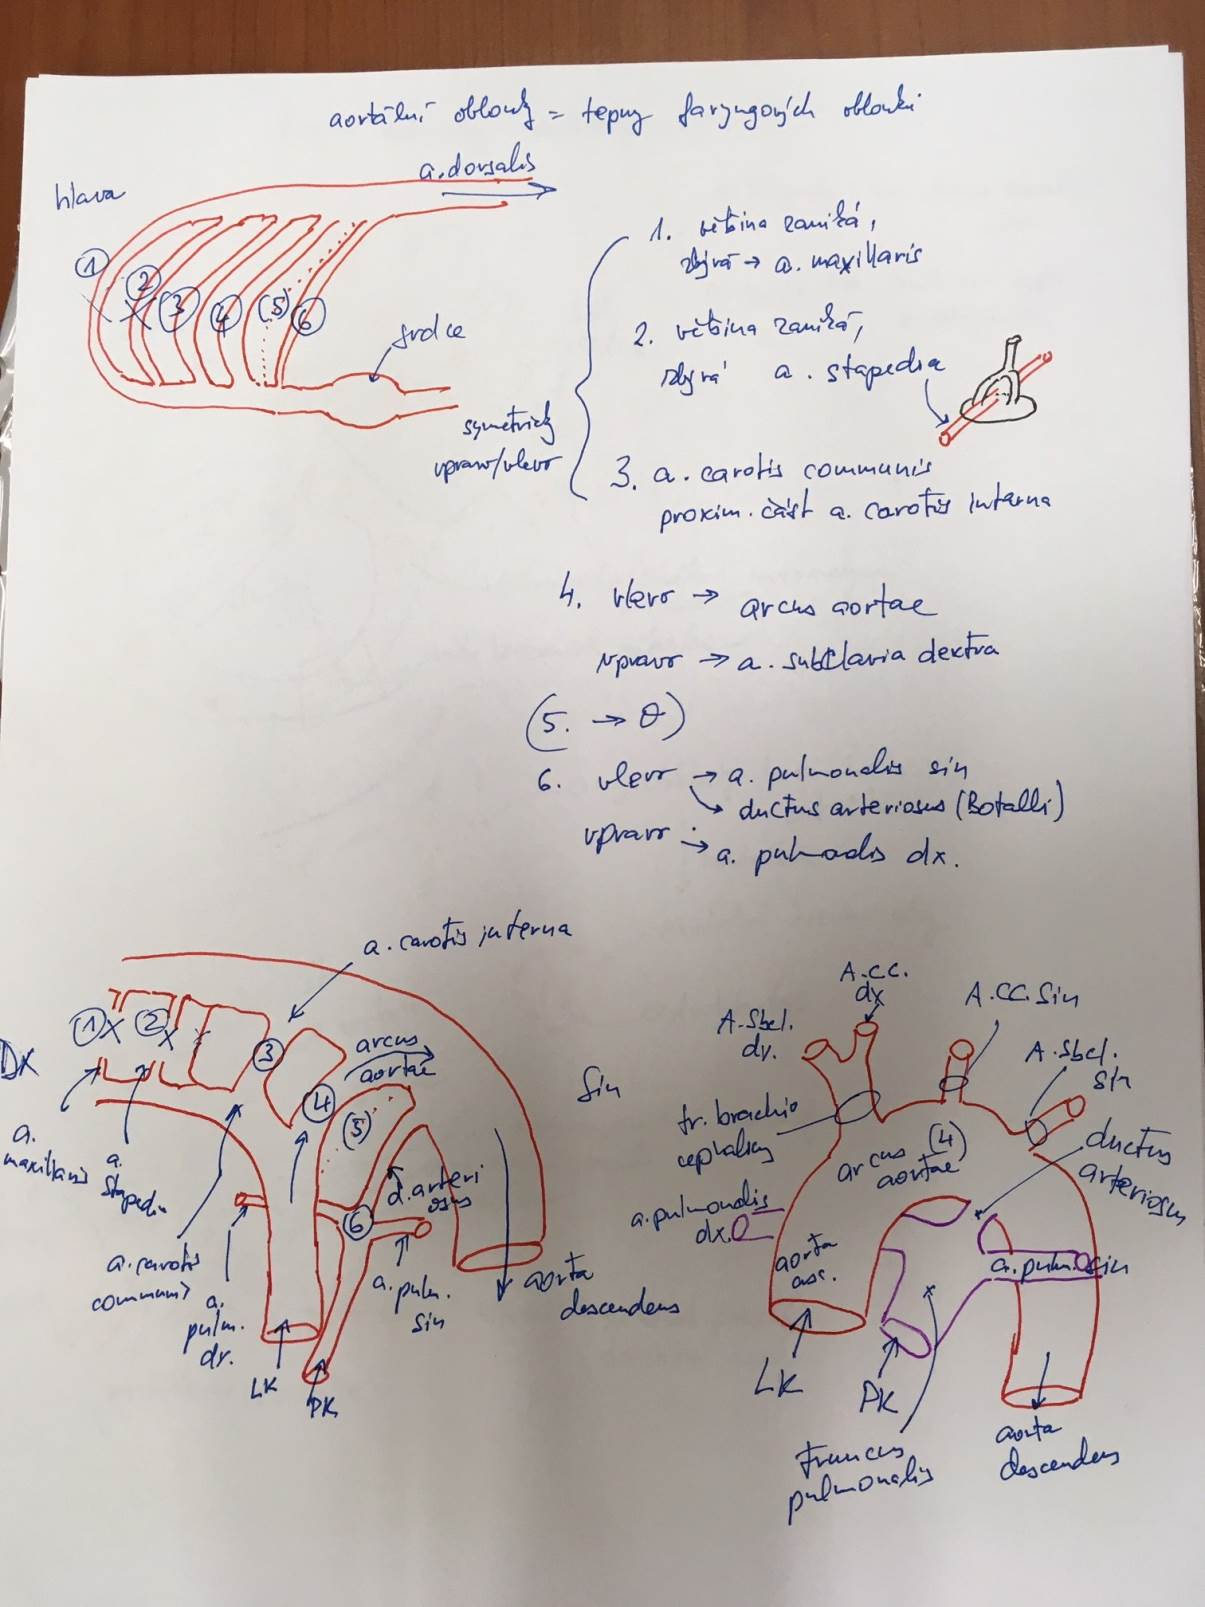 aortální oblouky = tepny faryngových oblouků
hlava
a. dorsalis
1
2
3
4
(5)
6
srdce
symetricky
vpravo/vlevo
1. většina zaniká,
zbývá → a. maxillaris
2. většina zaniká,
zbývá a. stapedia
3. a. carotis communis
proxim. část a. carotis interna
4. vlevo → arcus aortae
vpravo → a. subclavia dextra
(5. → ∅)
6. vlevo → a. pulmonalis sin
→ ductus arteriosus (Botalli)
vpravo → a. pulmonalis dx.
a. carotis interna
DX
1 x
2 x
3
4
(5)
6
arcus
aortae
Sin
a.
maxillaris
a.
stapedia
a. carotis
communis
a.
pulm.
dx.
d. arteri
osus
a. pulm.
sin
LK
PK
aorta
descendens
A. Sbcl.
dx.
A.C.C.
dx
A.C.C. Sin
A. Sbcl.
sin
tr. brachio
cephalicus
arcus (4)
aortae
ductus
arteriosus
a. pulmonalis
dx.
aorta
asc.
a. pulm. sin
LK
PK
truncus
pulmonalis
aorta
descendens